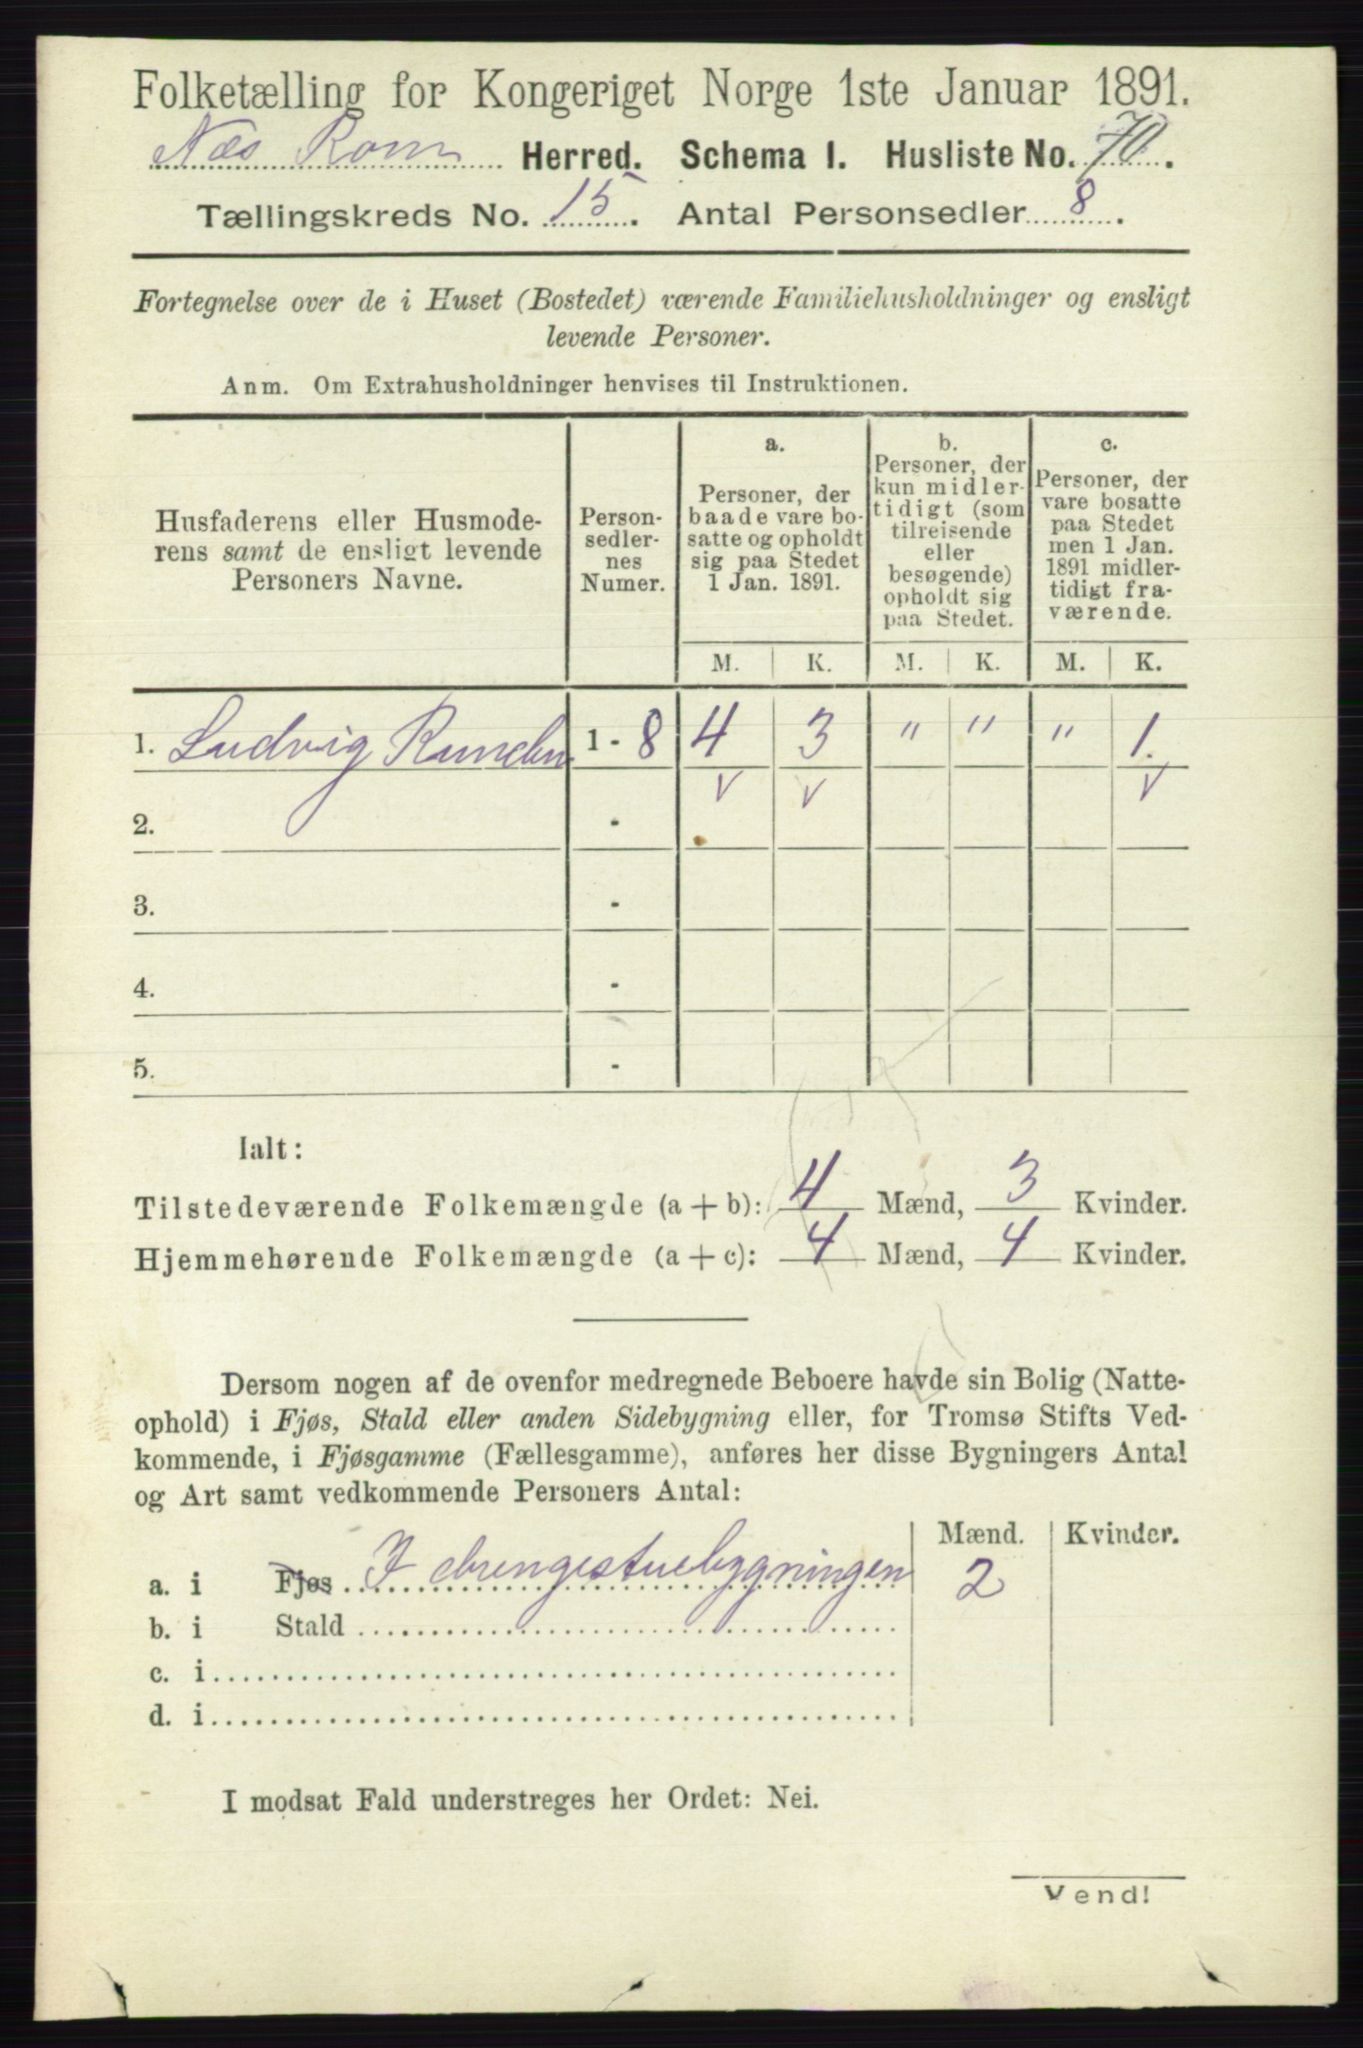 Folketælling for Kongeriget Norge 1ste Januar 1891.
Næs Rom Herred. Schema I. Husliste No. 70.
Tællingskreds No. 15. Antal Personsedler 8.
Fortegnelse over de i Huset (Bostedet) værende Familiehusholdninger og ensligt
levende Personer.
Anm. Om Extrahusholdninger henvises til Instruktionen.
Husfaderens eller Husmode-
rens samt de ensligt levende
Personers Navne.
Person-
sedler-
nes
Numer.
a.
Personer, der
baade vare bo-
satte og opholdt
sig paa Stedet
1 Jan. 1891.
b.
Personer, der
kun midler-
tidigt (som
tilreisende
eller
besøgende)
opholdt sig
paa Stedet.
c.
Personer, der
vare bosatte
paa Stedet
men 1 Jan.
1891 midler-
tidigt fra-
værende.
M. K. M. K. M. K.
1. Ludvig 1 - 8 4 3 " " " 1.
v v v
2. -
3. -
4. -
5. -
Ialt:
Tilstedeværende Folkemængde (a + b): 4 Mænd, 3 Kvinder.
Hjemmehørende Folkemængde (a + c): 4 Mænd, 4 Kvinder.
Dersom nogen af de ovenfor medregnede Beboere havde sin Bolig (Natte-
ophold) i Fjøs, Stald eller anden Sidebygning eller, for Tromsø Stifts Ved-
kommende, i Fjøsgamme (Fællesgamme), anføres her disse Bygningers Antal
og Art samt vedkommende Personers Antal:
Mænd. Kvinder.
a. i Fjøs I drengestuebygningen 2
b. i Stald
c. i
d. i
I modsat Fald understreges her Ordet: Nei.
Vend!